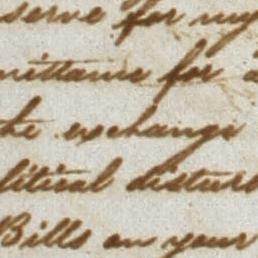 serve for my
mittance for a
the exchange
litical disturb
Bills on your